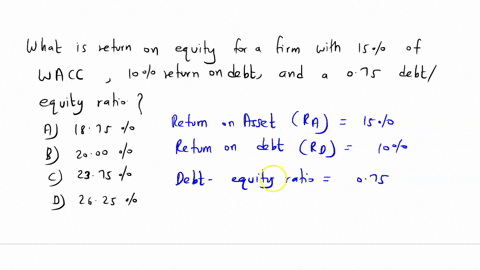 What is return on equity for a firm with 15% of
WACC, 10% return on debt, and a 0.75 debt/
equity ratio?
A) 18.75 %
B) 20.00 %
C) 23.75 %
D) 26.25 %
Return on Asset (RA) = 15%
Return on debt (RD) = 10%
Debt- equity ratio = 0.75